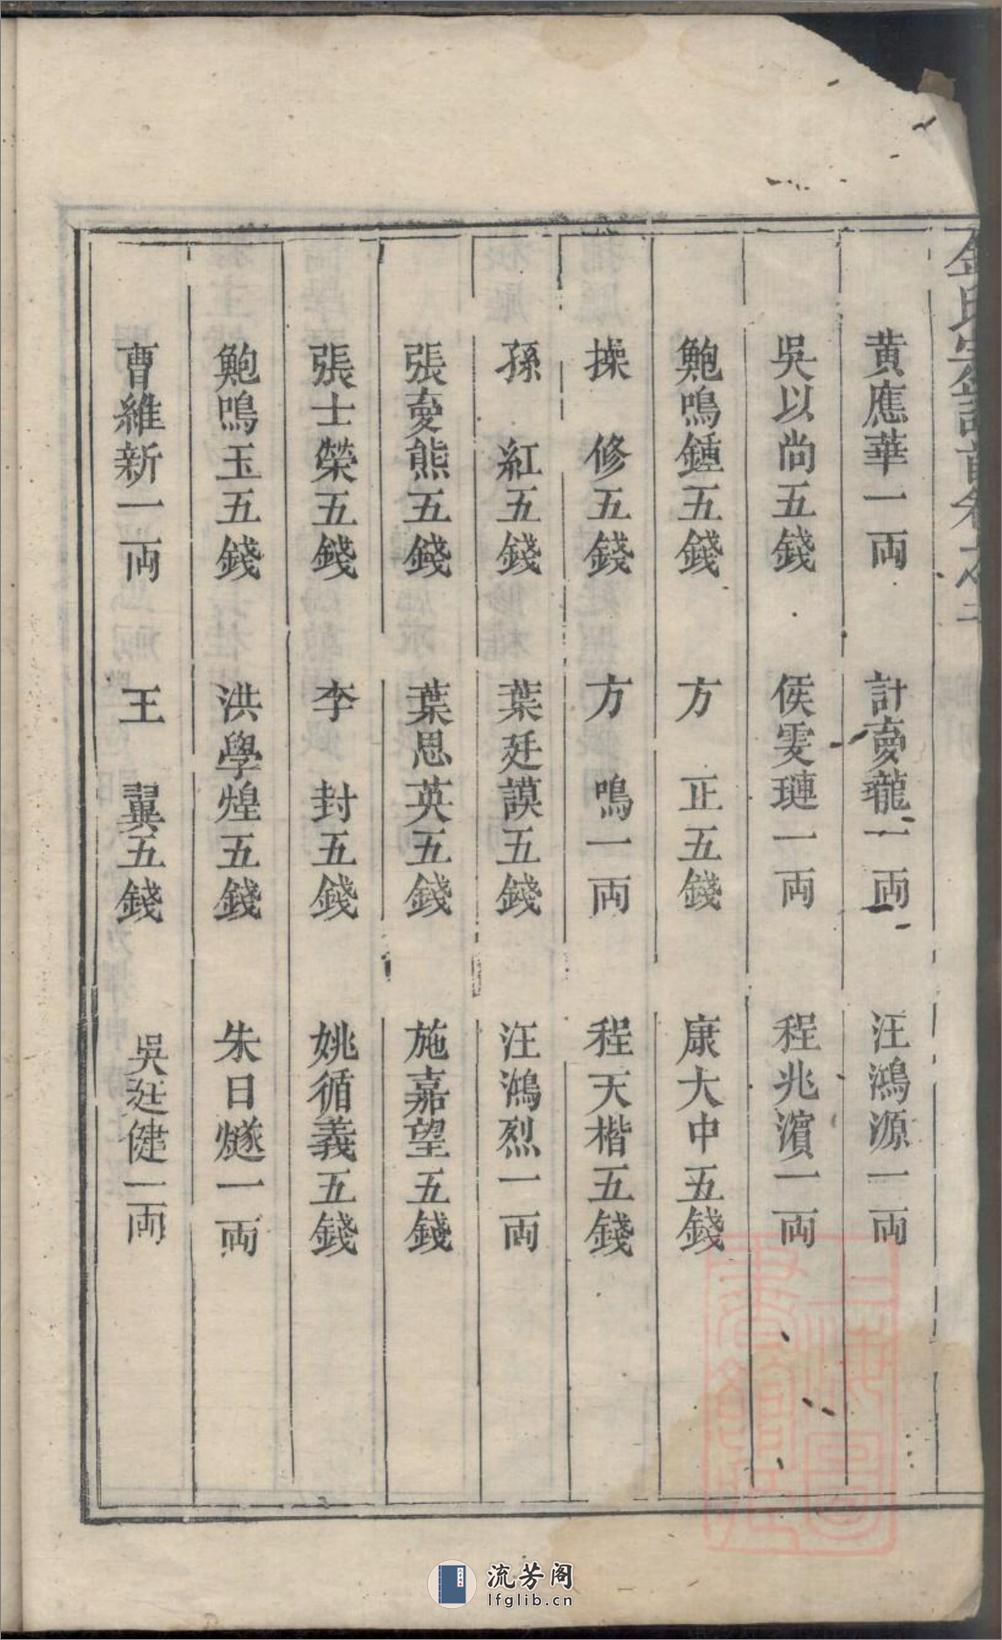 黄應華一両 計夌瓏一両 汪鴻源一両
吳以尚五錢 侯雯璉一両 程兆濱一両
鮑鳴鍾五錢 方 正五錢 康大中五錢
操 修五錢 方 鳴一両 程天楷五錢
孫 紅五錢 葉廷謨五錢 汪鴻烈一両
張夌熊五錢 葉思英五錢 施嘉望五錢
張士榮五錢 李 封五錢 姚循義五錢
鮑鳴玉五錢 洪學煌五錢 朱日燧一両
曹維新一両 王 翼五錢 吳廷健一両
流芳阁
lfglib.cn